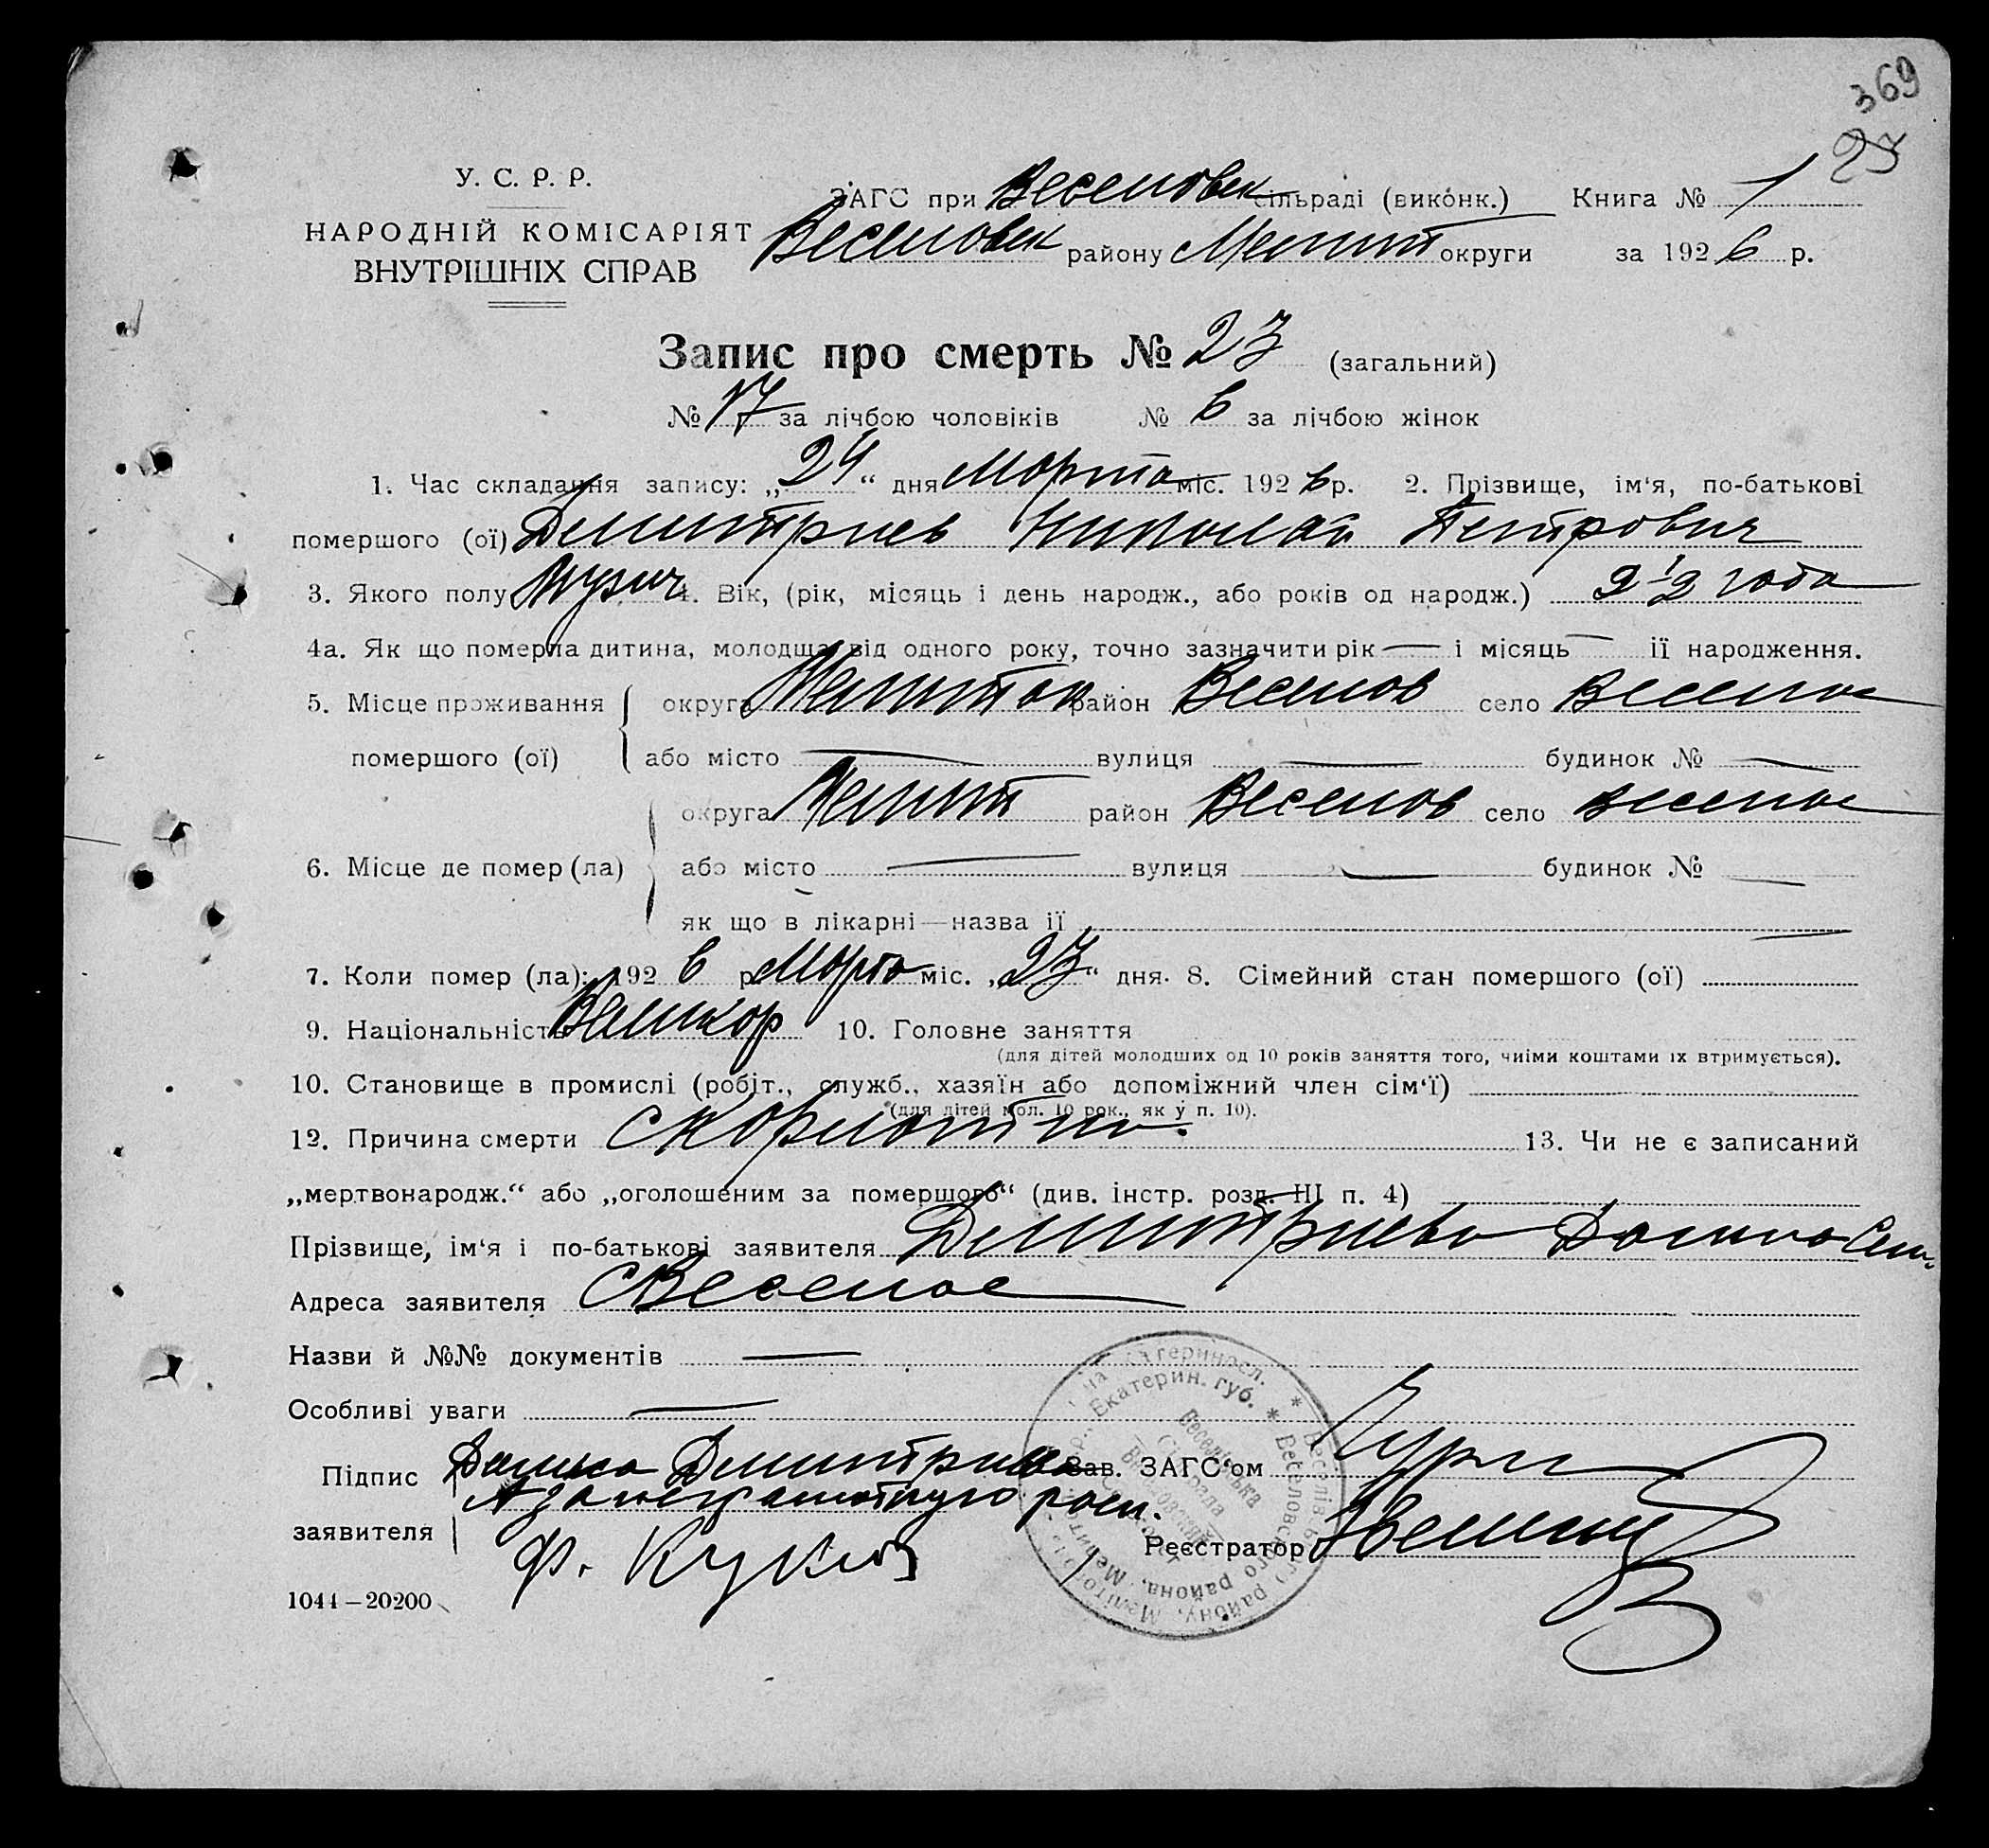 369
23
У. С. Р. Р.
НАРОДНІЙ КОМІСАРІЯТ
ВНУТРІШНІХ СПРАВ
ЗАГС при Веселовск сільраді (виконк.) Книга № 1
Веселовск району Мелит округи за 1926 р.
Запис про смерть № 23 (загальний)
№ 17 за лічбою чоловіків № 6 за лічбою жінок
1. Час складання запису: „24“ дня Марта міс. 1926 р. 2. Прізвище, ім‘я, по-батькові
помершого (ої) Димитриев Николай Петрович
3. Якого полу Мужич 4. Вік, (рік, місяць і день народж., або років од народж.) 2 1/2 года
4а. Як що померла дитина, молодша від одного року, точно зазначити рік — і місяць — її народження.
5. Місце проживання округа Мелитоп район Веселов село Веселое
помершого (ої) або місто — вулиця — будинок № —
округа Мелит район Веселов село Веселое
6. Місце де помер (ла) або місто — вулиця — будинок № —
як що в лікарні—назва її —
7. Коли помер (ла): 1926 р Марта міс. „23“ дня. 8. Сімейний стан помершого (ої)
9. Національність Великор 10. Головне заняття
(для дітей молодших од 10 років заняття того, чиїми коштами їх втримується).
10. Становище в промислі (робіт., служб., хазяїн або допоміжний член сім‘ї)
(для дітей мол. 10 рок., як у п. 10).
12. Причина смерти Скорлотина. 13. Чи не є записаний
„мертвонародж.“ або „оголошеним за помершого“ (див. інстр. розд. III п. 4)
Прізвище, ім‘я і по-батькові заявителя Димитриева Домна Сем.
Адреса заявителя с Веселое
Назви й №№ документів —
Особливі уваги —
Підпис Димитриева Зав. ЗАГС‘ом
А за неграмотную росп.
заявителя Ф. Реєстратор
1044–20200
Екатерин. губ. * Веселовского района, Мелит
Веселівська
Сільрада